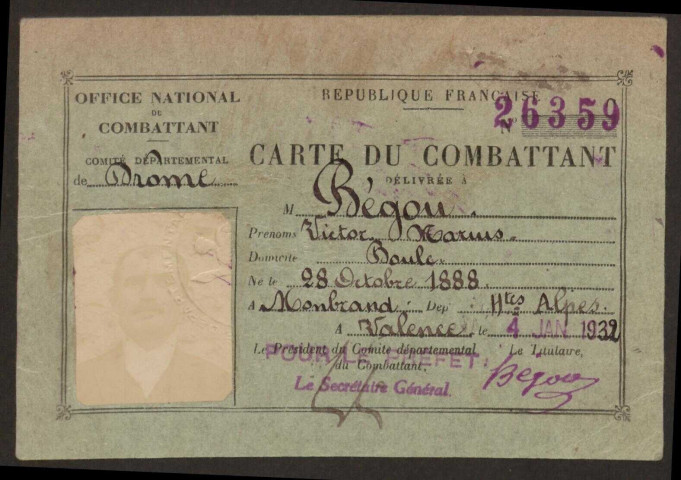 OFFICE NATIONAL
DU
COMBATTANT
COMITÉ DÉPARTEMENTAL
de Drôme
REPUBLIQUE FRANÇAISE
N° 26359
CARTE DU COMBATTANT
DÉLIVRÉE À
M Bégou.
Prénoms Victor Marius.
Domicile Boulc
Né le 28 Octobre 1888
A Monbrand Dep Htes Alpes.
A Valence le 4 JAN 1932
Le Président du Comité départemental
du Combattant,
Le Titulaire,
POUR LE PREFET,
Le Secrétaire Général.
Begou